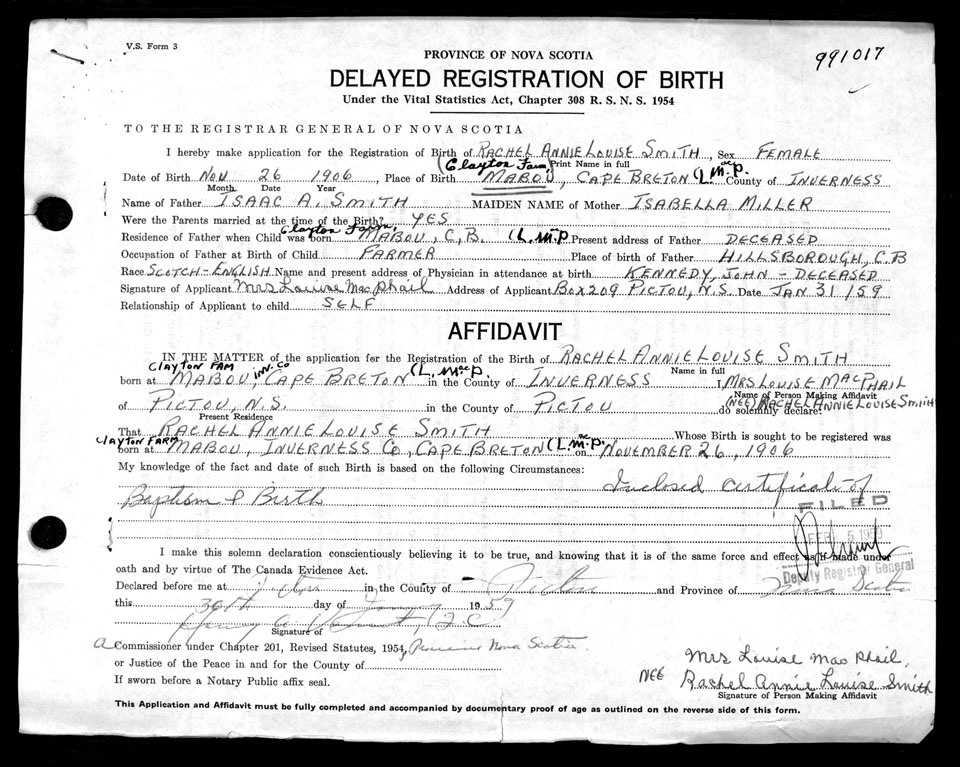 V.S. Form 3
991017
PROVINCE OF NOVA SCOTIA
DELAYED REGISTRATION OF BIRTH
Under the Vital Statistics Act, Chapter 308 R. S. N. S. 1954
TO THE REGISTRAR GENERAL OF NOVA SCOTIA
I hereby make application for the Registration of Birth of RACHEL ANNIE LOUISE SMITH, Sex FEMALE
(Clayton Farm) Print Name in full
Date of Birth NOV 26 1906, Place of Birth MABOU, CAPE BRETON (L. McP. County of INVERNESS
Month Date Year
Name of Father ISAAC A. SMITH MAIDEN NAME of Mother ISABELLA MILLER
Were the Parents married at the time of the Birth? YES
Clayton Farm,
Residence of Father when Child was born MABOU, C.B. (L. M.P Present address of Father DECEASED
Occupation of Father at Birth of Child FARMER Place of birth of Father HILLSBOROUGH, C.B
Race SCOTCH-ENGLISH Name and present address of Physician in attendance at birth KENNEDY, JOHN - DECEASED
Signature of Applicant Mrs Louise MacPhail Address of Applicant BOX 209 PICTOU, N.S. Date JAN 31/59
Relationship of Applicant to child SELF
AFFIDAVIT
IN THE MATTER of the application for the Registration of the Birth of RACHEL ANNIE LOUISE SMITH
CLAYTON FARM INV. CO (L. McP. Name in full
born at MABOU, CAPE BRETON in the County of INVERNESS I, MRS LOUISE MACPHAIL
Name of Person Making Affidavit
of PICTOU, N.S. in the County of PICTOU (NEE) RACHEL ANNIE LOUISE SMITH do solemnly declare:
Present Residence
That RACHEL ANNIE LOUISE SMITH Whose Birth is sought to be registered was
CLAYTON FARM
born at MABOU, INVERNESS CO, CAPE BRETON (L. McP. on NOVEMBER 26, 1906
My knowledge of the fact and date of such Birth is based on the following Circumstances:
Inclosed Certificate of
Baptism & Birth
FILED
FEB 5
I make this solemn declaration conscientiously believing it to be true, and knowing that it is of the same force and effect as if made under
oath and by virtue of The Canada Evidence Act.
Deputy Registrar General
Declared before me at Pictou in the County of Pictou and Province of Nova Scotia
this 30th day of January 1959
Signature of
a Commissioner under Chapter 201, Revised Statutes, 1954, Province Nova Scotia
or Justice of the Peace in and for the County of
If sworn before a Notary Public affix seal.
Mrs Louise MacPhail,
NEE Rachel Annie Louise Smith
Signature of Person Making Affidavit
This Application and Affidavit must be fully completed and accompanied by documentary proof of age as outlined on the reverse side of this form.